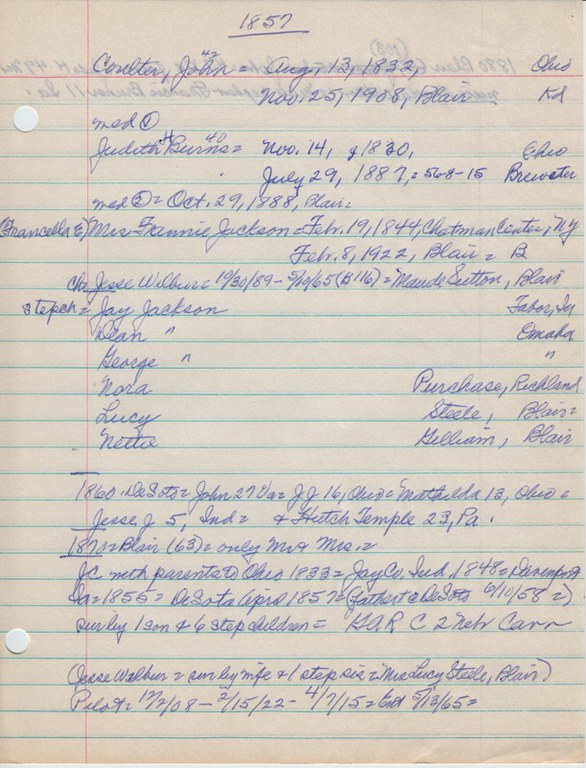 1857
Coulter, John 42 = Aug. 13, 1832, Ohio
Nov. 25, 1908, Blair Kd
med ①
Judith H Burns 40 = Nov. 14, 1830, Ohio
July 29, 1887, = 56-8-15 Brewster
med ② = Oct. 29, 1888, Blair =
(Francella E) Mrs Fannie Jackson = Feb. 19, 1844, Chatman Center, NY
Feb. 8, 1922, Blair = B
ch = Jesse Wilbur = 10/30/89 - (B 116) = Maude Sutton, Blair
stepch = Jay Jackson Tabor, Ia
Dean " Omaha
George " "
Nora Purchase, Richland
Lucy Steele, Blair =
Nettie Gilliam, Blair
1860 DeSoto = John 27 Va = J J 16, Ohio = Mathilda 13, Ohio =
Jesse J 5, Ind = & Hutch Temple 23, Pa.
1870 = Blair (63) = only Mr & Mrs. =
JC with parents to Ohio 1833 = Jay Co. Ind. 1848 = Davenport
Ia = 1855 = DeSoto April 1857 = (father d DeSoto 6/10/58 =)
sur by 1 son & 6 stepchildren = GAR C 2 Neb Cav
(Jesse Wilbur = sur by wife & 1 step sis = Mrs Lucy Steele, Blair)
Pilot = 12/2/08 - 2/15/22 - 4/7/15 = Ent 5/13/65 =